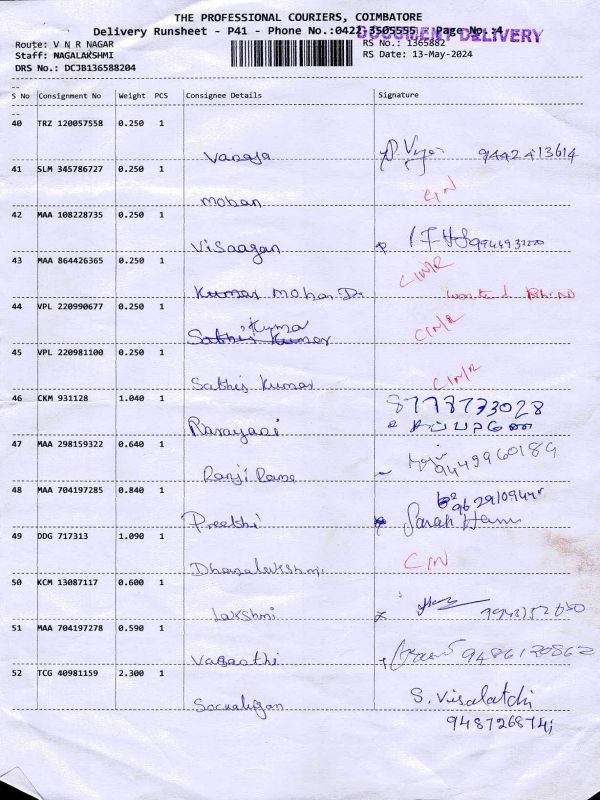 THE PROFESSIONAL COURIERS, COIMBATORE
Delivery Runsheet - P41 - Phone No.:0422-3505555 Page No.:4
DOCUMENT DELIVERY
Route: V N R NAGAR RS No.: 1365882
Staff: NAGALAKSHMI RS Date: 13-May-2024
DRS No.: DCJB136588204
S No Consignment No Weight PCS Consignee Details Signature
40 TRZ 120057558 0.250 1
9442413614
41 SLM 345786727 0.250 1
Mohan
42 MAA 108228735 0.250 1
Visaagan
43 MAA 864426365 0.250 1
Kumar Mohan
44 VPL 220990677 0.250 1
Kumar
Sathis Kumar
45 VPL 220981100 0.250 1
Sathis Kumar
46 CKM 931128 1.040 1
8778773028
47 MAA 298159322 0.640 1
9449960189
Ranji Rama
48 MAA 704197285 0.840 1
Preethi
49 DDG 717313 1.090 1
Dhanalakshmi
50 KCM 13087117 0.600 1
Lakshmi
51 MAA 704197278 0.590 1
Vasanthi 9486120862
52 TCG 40981159 2.300 1
S. Visalatchi